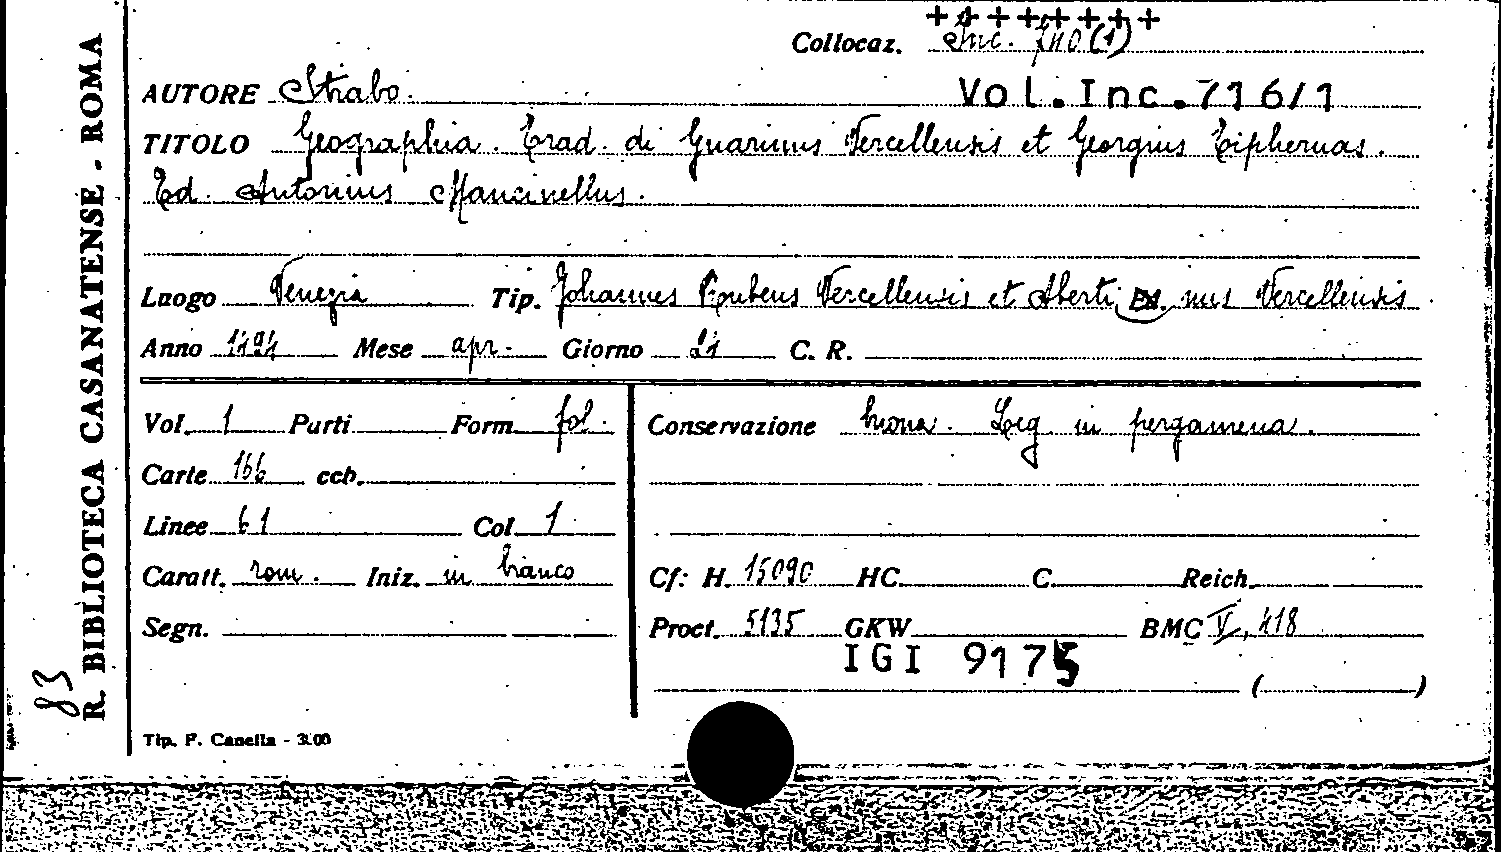 Collocaz. Inc. 740 (1)
AUTORE Strabo. Vol.Inc.716/1
TITOLO Geographia. Trad. di Guarinus Vercellensis et Georgius Tiphernas.
Ed. Antonius Mancinellus.
Luogo Venezia Tip. Johannes Rubeus Vercellensis et Alberti nus Vercellensis
Anno 1494 Mese apr. Giorno 24 C. R.
Vol. 1 Parti Form. fol.
Carte 166 ecb.
Linee 61 Col. 1
Caratt. rom. Iniz. in bianco
Segn.
Conservazione buona. Leg in pergamena.
Cf: H. 15090 HC. C. Reich.
Proct. 5135 GKW. BMC V, 418
IGI 9175
( )
R. BIBLIOTECA CASANATENSE - ROMA
83
Tip. F. Canella - 3.00